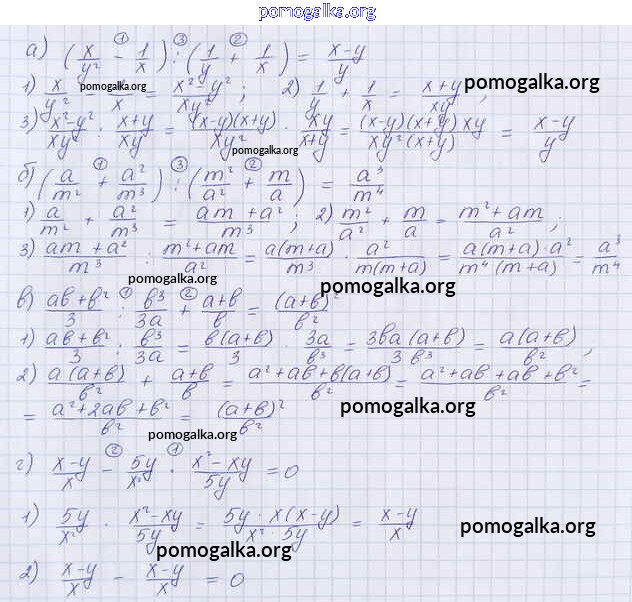 pomogalka.org
а) (x/y² - 1/x) : (1/y + 1/x) = x-y/y
① ③ ②
1) x/y² - 1/x = x²-y²/xy² ; 2) 1/y + 1/x = x+y/xy ;
pomogalka.org pomogalka.org
3) x²-y²/xy² : x+y/xy = (x-y)(x+y)/xy² · xy/x+y = (x-y)(x+y)xy/xy²(x+y) = x-y/y
pomogalka.org
б) (a/m² + a²/m³) : (m²/a² + m/a) = a³/m⁴
① ③ ②
1) a/m² + a²/m³ = am+a²/m³ ; 2) m²/a² + m/a = m²+am/a² ;
3) am+a²/m³ : m²+am/a² = a(m+a)/m³ · a²/m(m+a) = a(m+a)·a²/m⁴(m+a) = a³/m⁴
pomogalka.org pomogalka.org
в) ав+в²/3 : в³/3а + а+в/в = (а+в)²/в²
① ②
1) ав+в²/3 : в³/3а = в(а+в)/3 · 3а/в³ = 3ва(а+в)/3в³ = а(а+в)/в² ,
2) а(а+в)/в² + а+в/в = а²+ав+в(а+в)/в² = а²+ав+ав+в²/в² =
= а²+2ав+в²/в² = (а+в)²/в²
pomogalka.org
pomogalka.org
г) x-y/x - 5y/x² · x²-xy/5y = 0
② ①
1) 5y/x² · x²-xy/5y = 5y·x(x-y)/x²·5y = x-y/x
pomogalka.org
pomogalka.org
2) x-y/x - x-y/x = 0